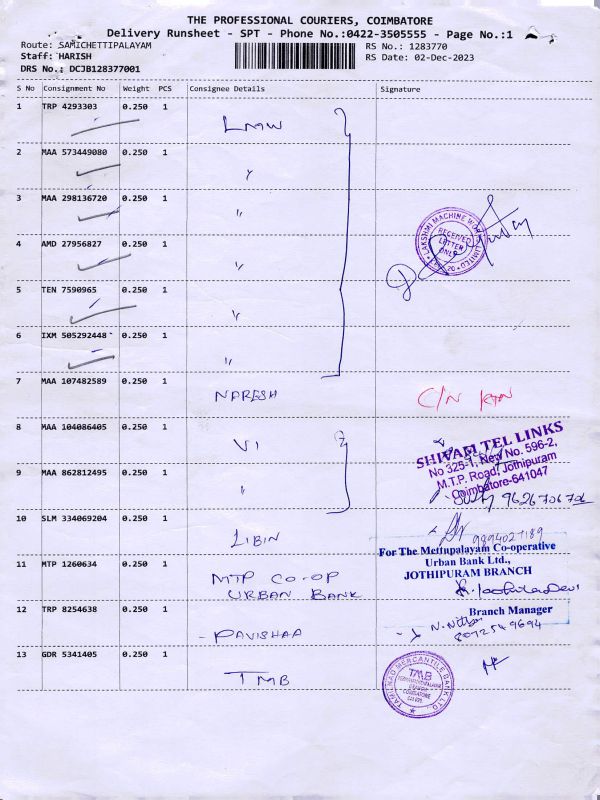 THE PROFESSIONAL COURIERS, COIMBATORE
Delivery Runsheet - SPT - Phone No.:0422-3505555 - Page No.:1
Route: SAMICHETTIPALAYAM RS No.: 1283770
Staff: HARISH RS Date: 02-Dec-2023
DRS No.: DCJB128377001
S No Consignment No Weight PCS Consignee Details Signature
1 TRP 4293303 0.250 1 LMW
2 MAA 573449080 0.250 1 "
3 MAA 298136720 0.250 1 "
LAKSHMI MACHINE WORKS LIMITED
RECEIVED
LETTER
ONLY
4 AMD 27956827 0.250 1 "
5 TEN 7590965 0.250 1 "
6 IXM 505292448 0.250 1 "
7 MAA 107482589 0.250 1 NARESH C/N
8 MAA 104086405 0.250 1 VI
SHIVAM TEL LINKS
No 325-1, New No. 596-2,
M.T.P. Road, Jothipuram
Coimbatore-641047
9 MAA 862812495 0.250 1 "
10 SLM 334069204 0.250 1 LIBIN
9894027189
For The Mettupalayam Co-operative
Urban Bank Ltd.,
JOTHIPURAM BRANCH
11 MTP 1260634 0.250 1 MTP CO-OP
URBAN BANK
Branch Manager
12 TRP 8254638 0.250 1 - PAVISHAA
8072549694
13 GDR 5341405 0.250 1 TMB
TAMILNAD MERCANTILE BANK LTD.
TMB